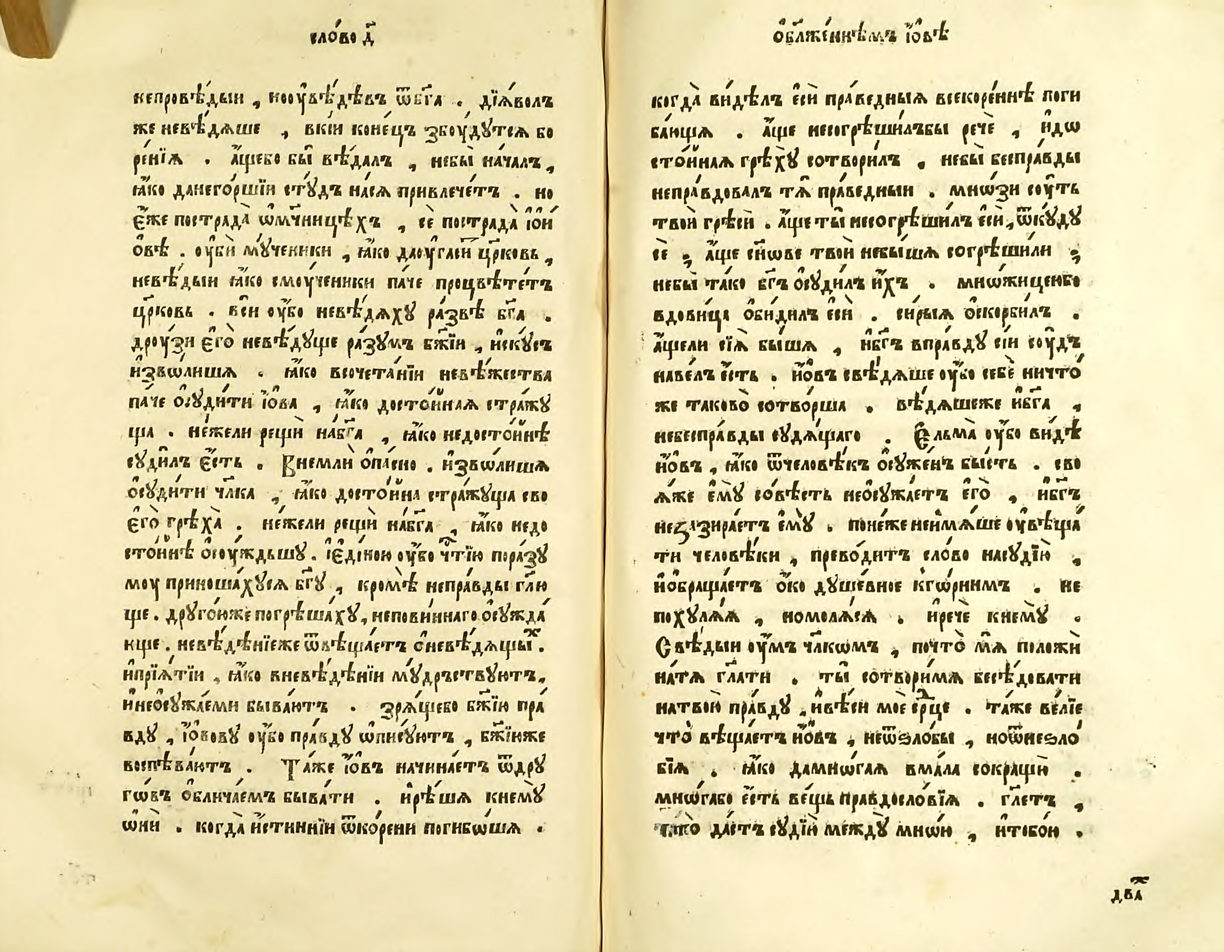 сло́во д҃
непровѣ́дыи , ноо̑увѣ́дѣвъ ѿбг҃а . дїѧ́волъ
же невѣ́дѧше , вкі́и коне́цъ збоу́дутсѧ бо
ре́нїѧ . а҆́щебо бы̀ вѣ́далъ , небы̀ нача́лъ ,
ꙗ҆́ко данего́ршїи сту́дъ насѧ̀ привлече́тъ . но
є҆́же пострада̀ ѡ҆мч҃ницѣхъ , се́ пострада̀ і҆о́и
о҆́вѣ . оу҆бѝ му́ченики , ꙗ҆́ко даоугаси́т цр҃ковь ,
невѣ́дыи ꙗ҆́ко смоу́ченики па́че процвѣте́тъ
цр҃ковь . всѝ оу҆́бо невѣ́дѧху ра́звѣ бг҃а .
дроу́зи є҆го̀ невѣ́дуще ра́зумъ бж҃їи , и҆ску́съ
и҆зво́лишѧ . ꙗ҆́ко всочета́нїи невѣ́жества
па́че о҆суди́ти і҆́ова , ꙗ҆́ко досто́йнаѧ стра́жу
ща . не́жели рещѝ набг҃а , ꙗ҆́ко недосто́йнѣ
суди́лъ є҆́сть . Внемлѝ ѻ҆па́сно . и҆зво́лишѧ
ѻ҆суди́ти чл҃ка , ꙗ҆́ко досто́йна стра́жуща сво
є҆го̀ грѣха̀ . не́жели рещѝ набг҃а , ꙗ҆́ко недо
сто́йнѣ о҆соу́ждьшу . і҆є҆ди́ною оу҆́бо чт҃їю пора́зу
моу приноша́хусѧ бг҃у , кро́мѣ непра́вды гл҃ю
ще . друго́юже погрѣша́ху , непови́ннаго о҆сужда́
юще . невѣ́дѣнїеже ѿвѣща́етъ о҆невѣ́дѧщых .
и҆прїѧ́тїи , ꙗ҆́ко вневѣ́дѣнїи му́дрьствуютъ ,
и҆неѻ҆сужда́еми быва́ютъ . зрѧ́щебо бж҃їю пра́
вду , і҆о́вову оу҆́бо пра́вду ѡ҆пису́ютъ , бж҃їюже
воспѣва́ютъ . Та́же і҆́овъ начина́етъ ѿдру
го́въ о҆блича́емъ быва́ти . и҆рѣ́шѧ кнему̀
ѡ҆нѝ . когда̀ и҆́стиннїи ѿко́рени поги́бошѧ .
ѻ҆бл҃же́ннѣмъ і҆́овѣ
когда̀ ви́дѣлъ є҆сѝ пра́ведныѧ всекоре́ннѣ поги
ба́ющѧ . а҆́ще несогрѣши́лъбы речѐ , и҆дѡ
сто́йнаѧ грѣху̀ сотвори́лъ , небы̀ бесправды
непра́вдовалъ тѧ̀ пра́ведныи . мнѡ́зи соу́ть
твоѝ грѣсѝ . а҆́ще ты̀ несогрѣши́лъ є҆сѝ , ѿку́ду
сѐ ; а҆́ще сы́нове твоѝ небы́шѧ согрѣши́ли ;
небы̀ та́ко бг҃ъ ѻ҆суди́лъ и҆́хъ . мно́жиценбо
вдови́ца ѻ҆би́дилъ є҆сѝ . си́рыѧ ѻ҆скорби́лъ .
а҆́щели сїѧ̀ бы́шѧ , и҆бг҃ъ впра́вду сі́и соу́дъ
наве́лъ є҆́сть . и҆́овъ свѣ́дѧше оу҆́бо себѐ ничто́
же таково̀ сотво́рша . вѣ́дѧшеже и҆бг҃а ,
небеспра́вды судѧ́щаго . Є҆льма̀ оу҆́бо ви́дѣ
и҆́овъ , ꙗ҆́ко ѿчеловѣ́къ ѻ҆сужде́нъ бы́сть . сво
ѧ́же є҆му̀ со́вѣсть неѻ҆сужда́етъ є҆го̀ , и҆бг҃ъ
незазира́етъ є҆му̀ . поне́же неимѧ́ше оу҆вѣща́
ти человѣ́ки , прево́дитъ сло́во насудїю̀ ,
и҆ѻ҆браща́етъ ѻ҆́ко душе́вное кго́рнимъ . не
поху́лѧѧ , номолѧ́сѧ . и҆речѐ кнему̀ .
Свѣ́дыи оу҆́мъ чл҃комъ , почто̀ мѧ̀ положѝ
натѧ̀ гл҃ати . ты̀ сотвори́мѧ бесѣ́довати
натвою̀ пра́вду , и҆вѣсѝ моѐ ср҃це . та́же ве́лїе
что̀ вѣща́етъ и҆́овъ , неѿзло́бы , ноѿнезло́
бїѧ . ꙗ҆́ко дамно́гаѧ вма́ла сокращѝ .
мно́габо є҆́сть ве́щь правдосло́вїѧ . гл҃етъ ,
та́ко да́стъ судїѝ между̀ мно́ю , и҆тобо́ю .
два̀ж